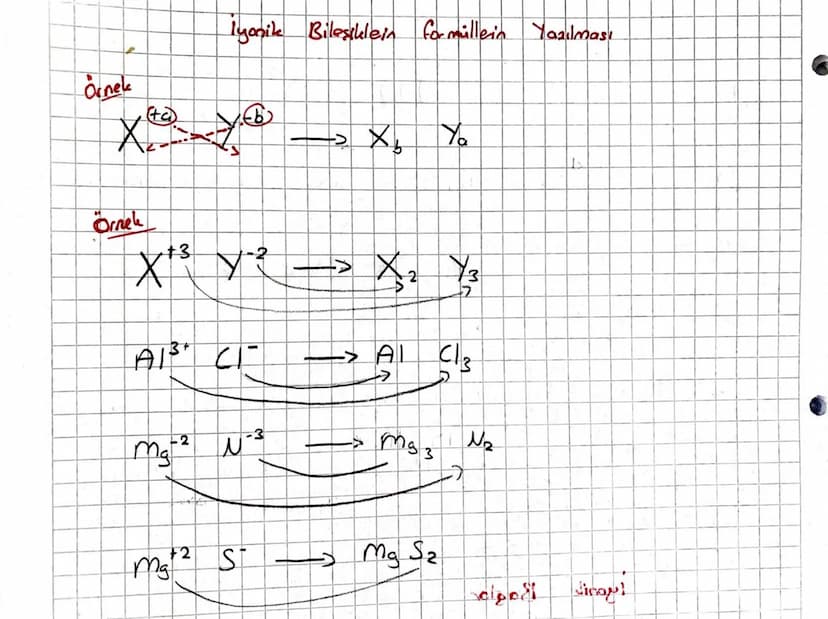 İyonik Bileşiklein formüllein Yazılması
Örnek
X⁺ᵃ Y⁻ᵇ → X_b Y_a
Örnek
X⁺³ Y⁻² → X₂ Y₃
Al³⁺ Cl⁻ → Al Cl₃
Mg⁻² N⁻³ → Mg₃ N₂
Mg⁺² S⁻ → Mg S₂